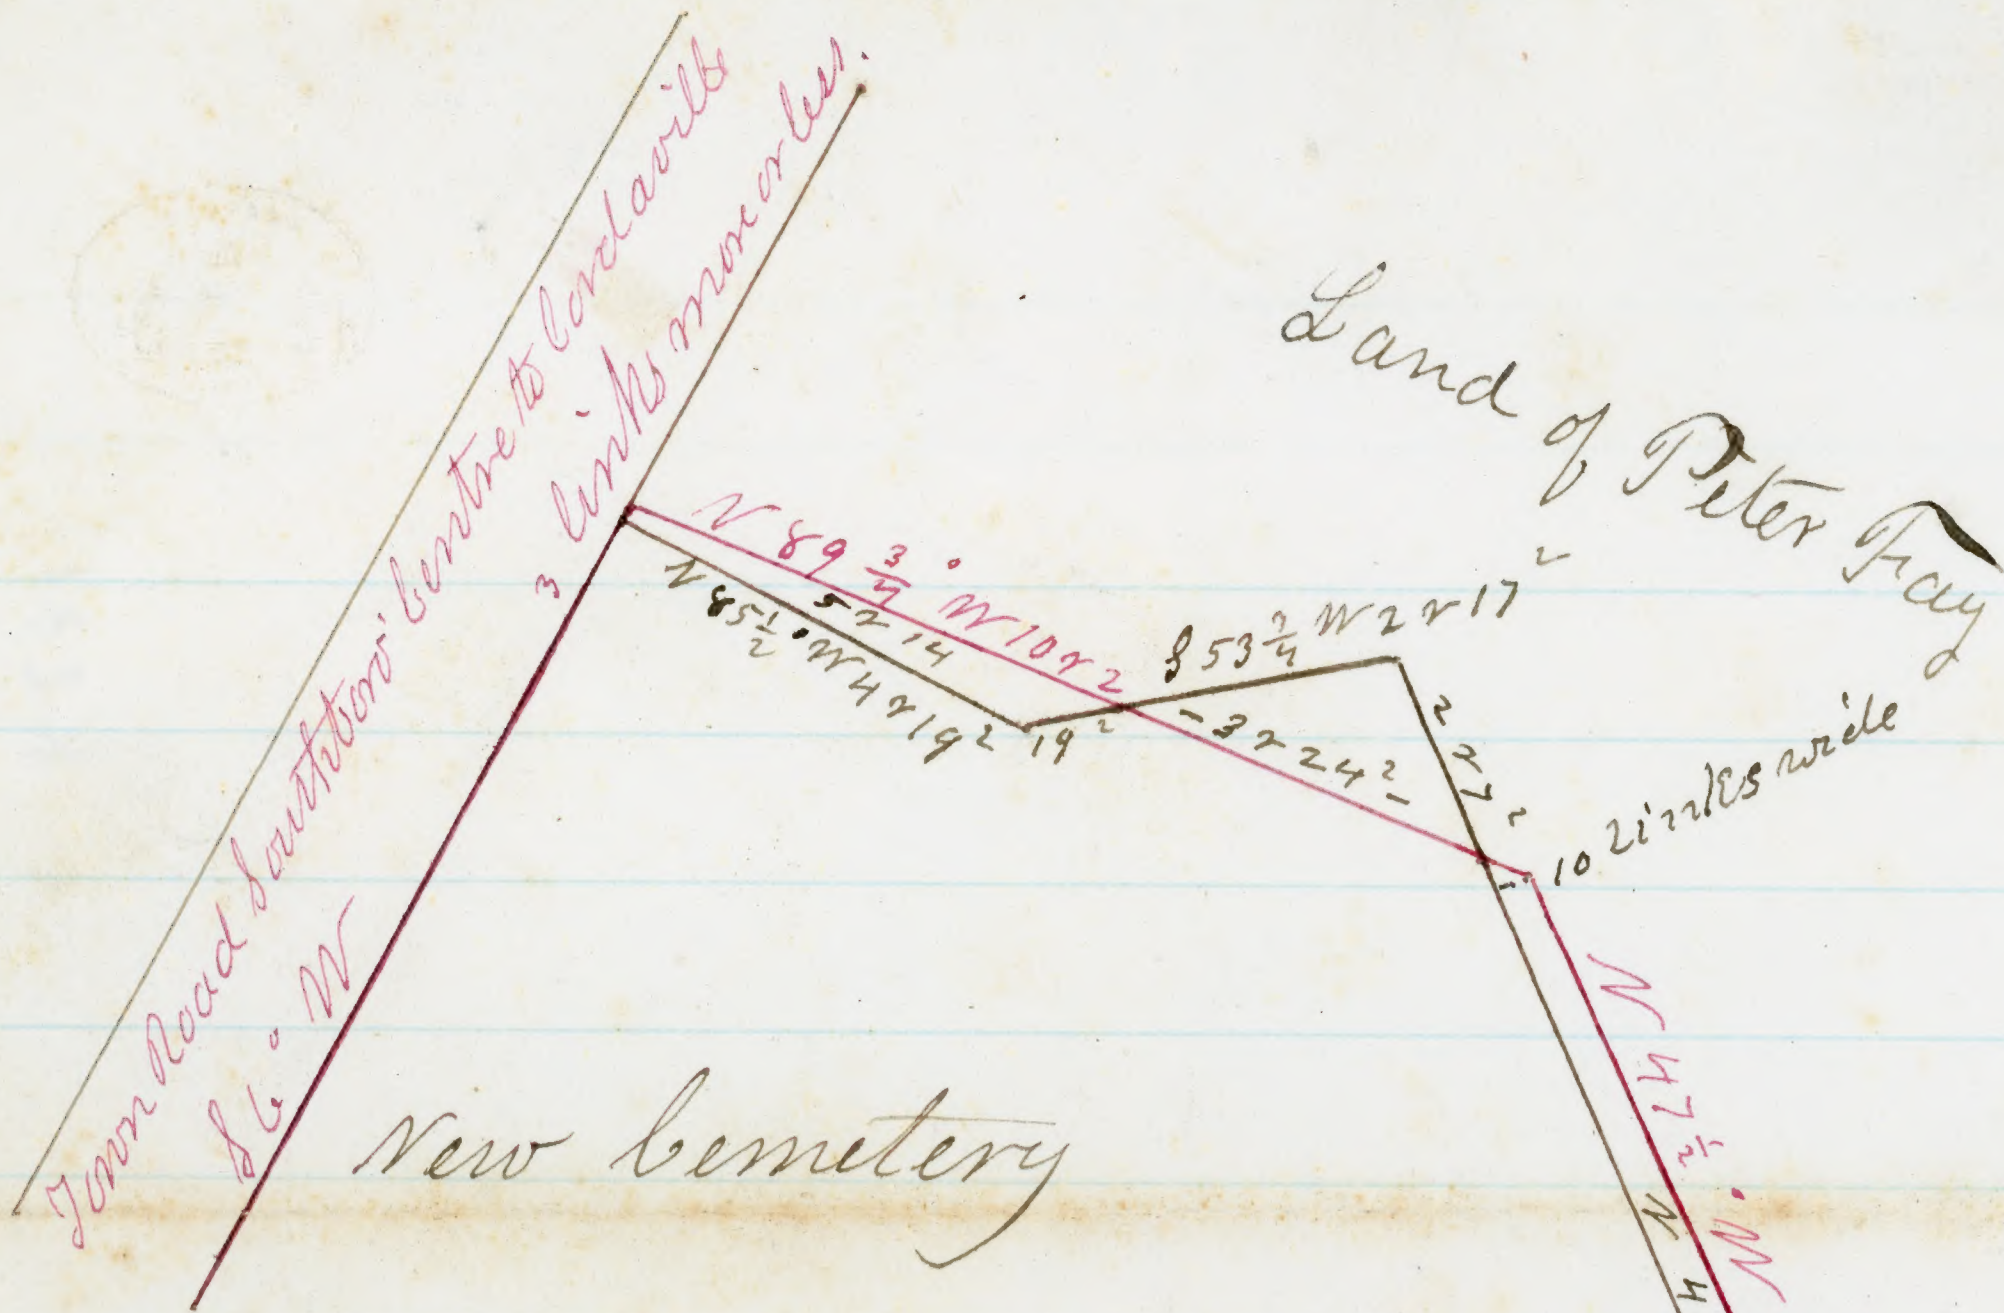 Town Road Southboro' Centre to Cordaville
3 links more or less.
S 6° W
Land of Peter Fay
N 89 3/4° W 10 r 2
5 r 14
N 85 1/2° W 4 r 19 2
19 2
S 53 3/4 W 2 r 17 2
- 3 r 24 2 -
2 r 7 2
10 links wide
N 47 1/2 W.
N 4
New Cemetery